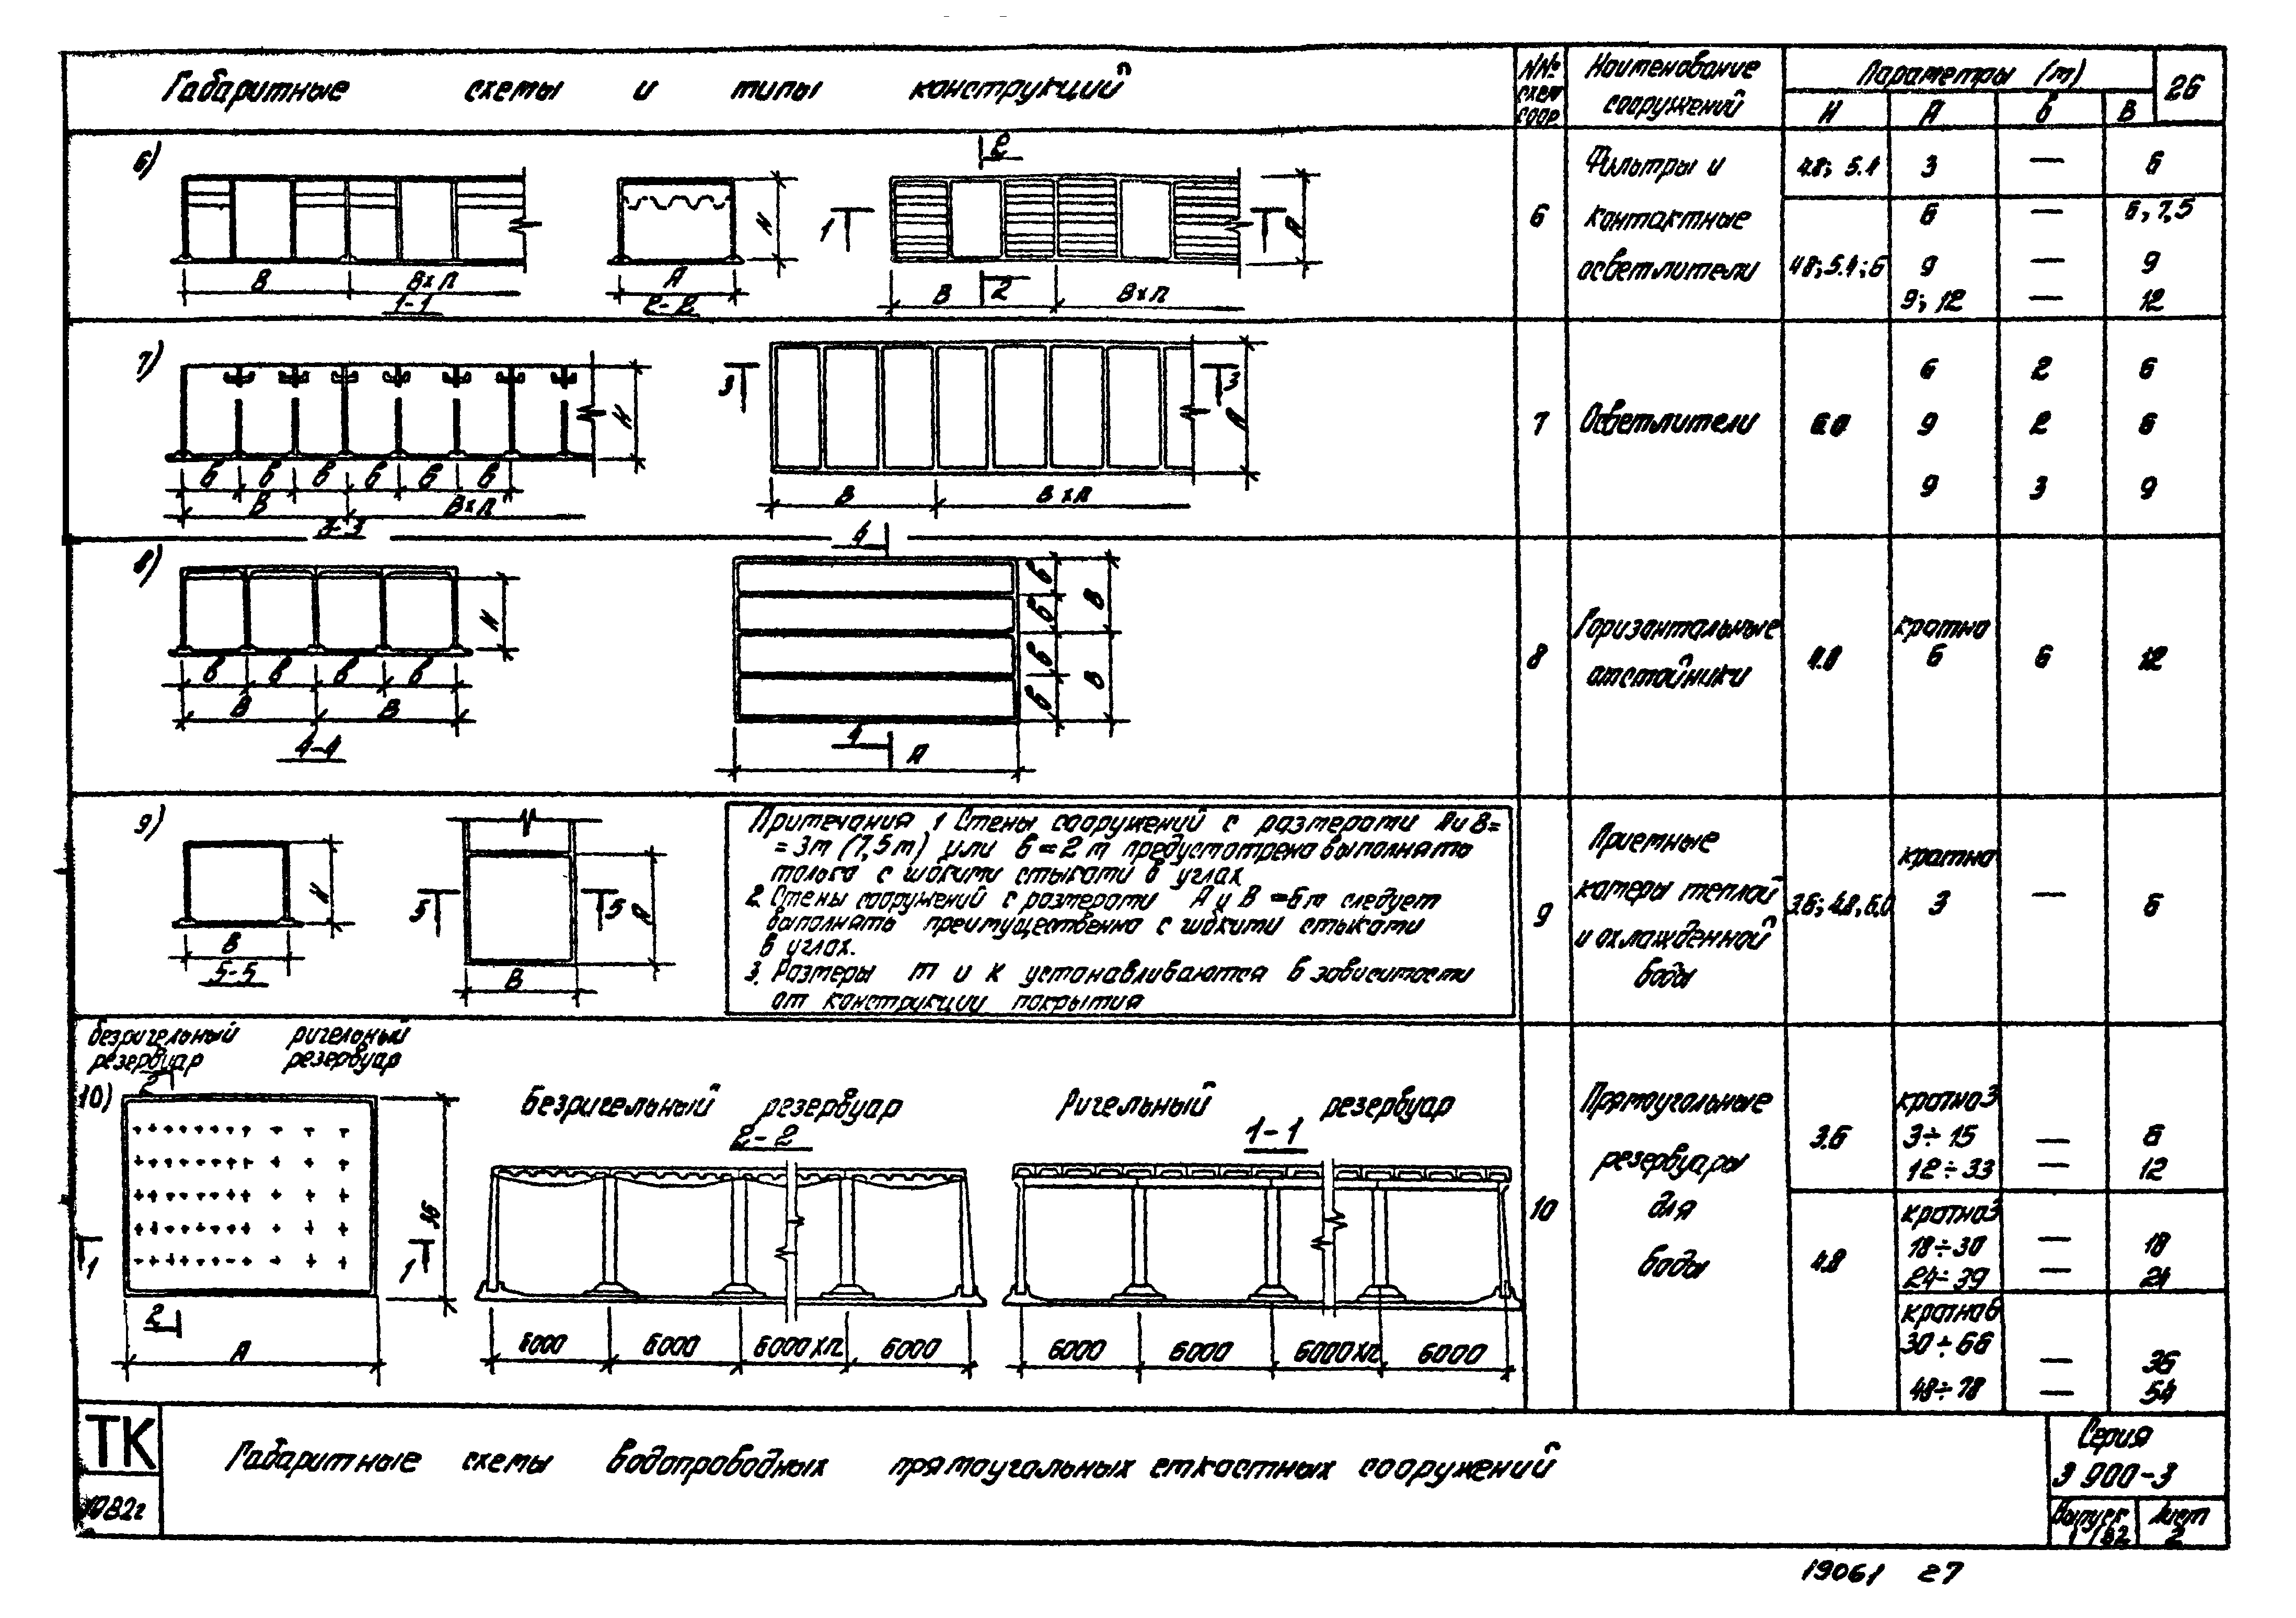 Габаритные схемы и типы конструкций
NN№ схем соор.
Наименование сооружений
Параметры (м)
Н А б В
26
6)
В В×п
1-1
А Н
2-2
2
1 1
В 2 В×п
А
6
Фильтры и
контактные
осветлители
4.8; 5.4 3 — 6
6 — 6; 7,5
4.8; 5.4; 6 9 — 9
9; 12 — 12
7)
б б б б б б
В В×п
Н
3-3
3 3
В В×п
А
7 Осветлители 6.0
6 2 6
9 2 6
9 3 9
8)
б б б б
В В
Н
4-4
4
б б б б
В В
4
А
8
Горизантальные
отстойники
4.8
кратно
6 6 12
9)
Н
В
5-5
5 5
А
В
Примечания 1 Стены сооружений с размерами А и В=
= 3м (7,5м) или б = 2 м предусмотрено выполнять
только с гибкими стыками в углах
2. Стены сооружений с размерами А и В = 6м следует
выполнять преимущественно с гибкими стыками
в углах.
3. Размеры m и к устанавливаются в зависимости
от конструкции покрытия
9
Приемные
камеры теплой
и охлажденной
воды
3.6; 4.8; 6.0
кратно
3 — 6
безригельный резервуар
ригельный резервуар
10)
2
1 1
2
А
36
Безригельный резервуар
2-2
6000 6000 6000×п 6000
Ригельный резервуар
1-1
6000 6000 6000×п 6000
10
Прямоугольные
резервуары
для
воды
3.6
кратно 3
3÷15 — 6
12÷33 — 12
4.8
кратно 3
18÷30 — 18
24÷39 — 24
кратно 6
30÷66 — 36
48÷78 — 54
ТК
1982г
Габаритные схемы водопроводных прямоугольных емкостных сооружений
Серия
3 900-3
Выпуск
1/82
Лист
2
19061 27